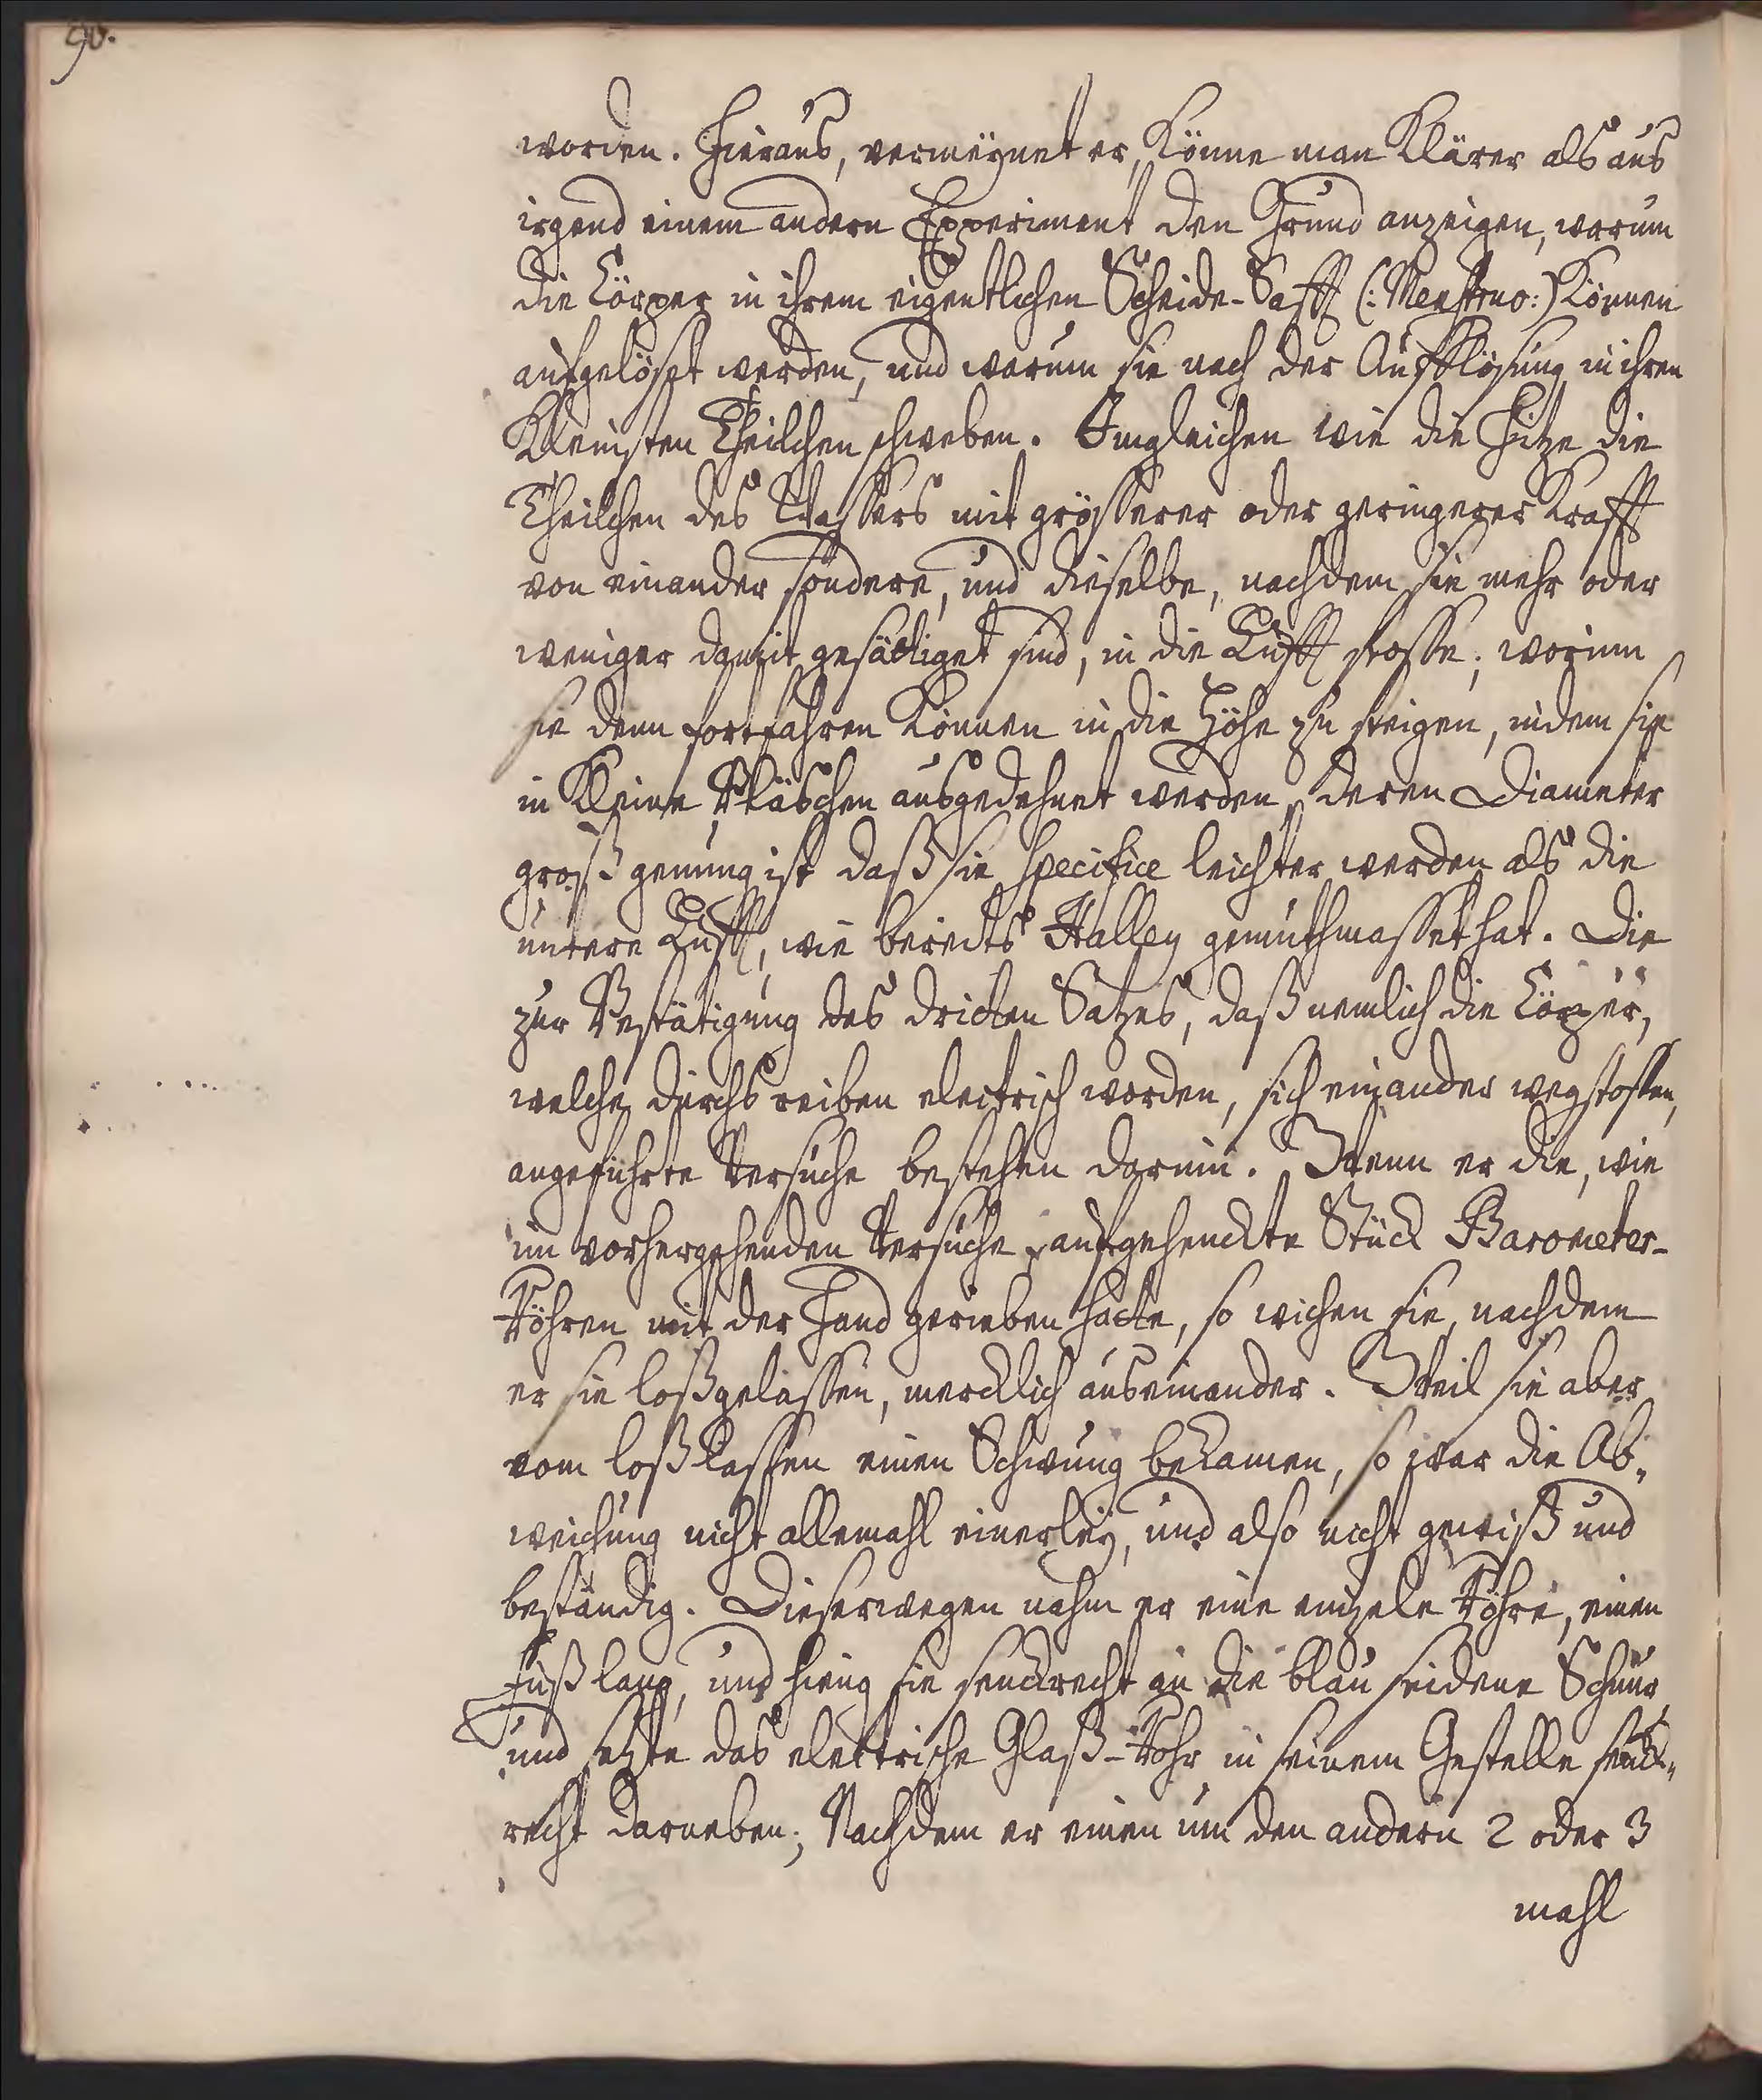 90.
worden. Hieraus, vermeÿnet er, Könne man Klärer als aus
irgend einem andern Experiment den Grund anzeigen, warum
die Cörper in ihrem eigentlichen Scheide-Safft (: Menstruo:) Können
aufgelöset werden, und warum sie nach der Aufflösung in ihren
Kleinsten Theilchen schweben. Imgleichen wie die Hitze die
Theilchen des Wassers mit grösserer oder geringerer Krafft
von einander sondere, und dieselbe, nachdem sie mehr oder
weniger damit gesättiget sind, in die Lufft stosse; worinn
sie denn fortfahren Können in die Höhe zu steigen, indem sie
in Kleine Bläschen ausgedehnet werden, deren Diameter
groß genung ist daß sie specifice leichter werden als die
untere Lufft, wie bereits Halley gemuthmasset hat. Die
zur Bestätigung des dritten Satzes, daß nemlich die Cörper,
welche durchs reiben electrisch worden, sich einander wegstossen,
angeführte Versuche bestehen darinn. Wenn er die, wie
im vorhergehenden Versuche, aufgehenckte Stück Barometer-
Röhren mit der Hand gerieben hatte, so wichen sie, nachdem
er sie loßgelassen, mercklich auseinander. Weil sie aber
vom loßlassen einen Schwung bekamen, so war die Ab„
weichung nicht allemahl einerleÿ, und also nicht gewiß und
beständig. Dieserwegen nahm er eine einzele Röhre, einen
Fuß lang, und hieng sie senckrecht an die blau seidene Schnur,
und setzte das elektrische Glaß-Rohr in seinem Gestelle senck„
recht darneben; Nachdem er einen um den andern 2 oder 3
mahl